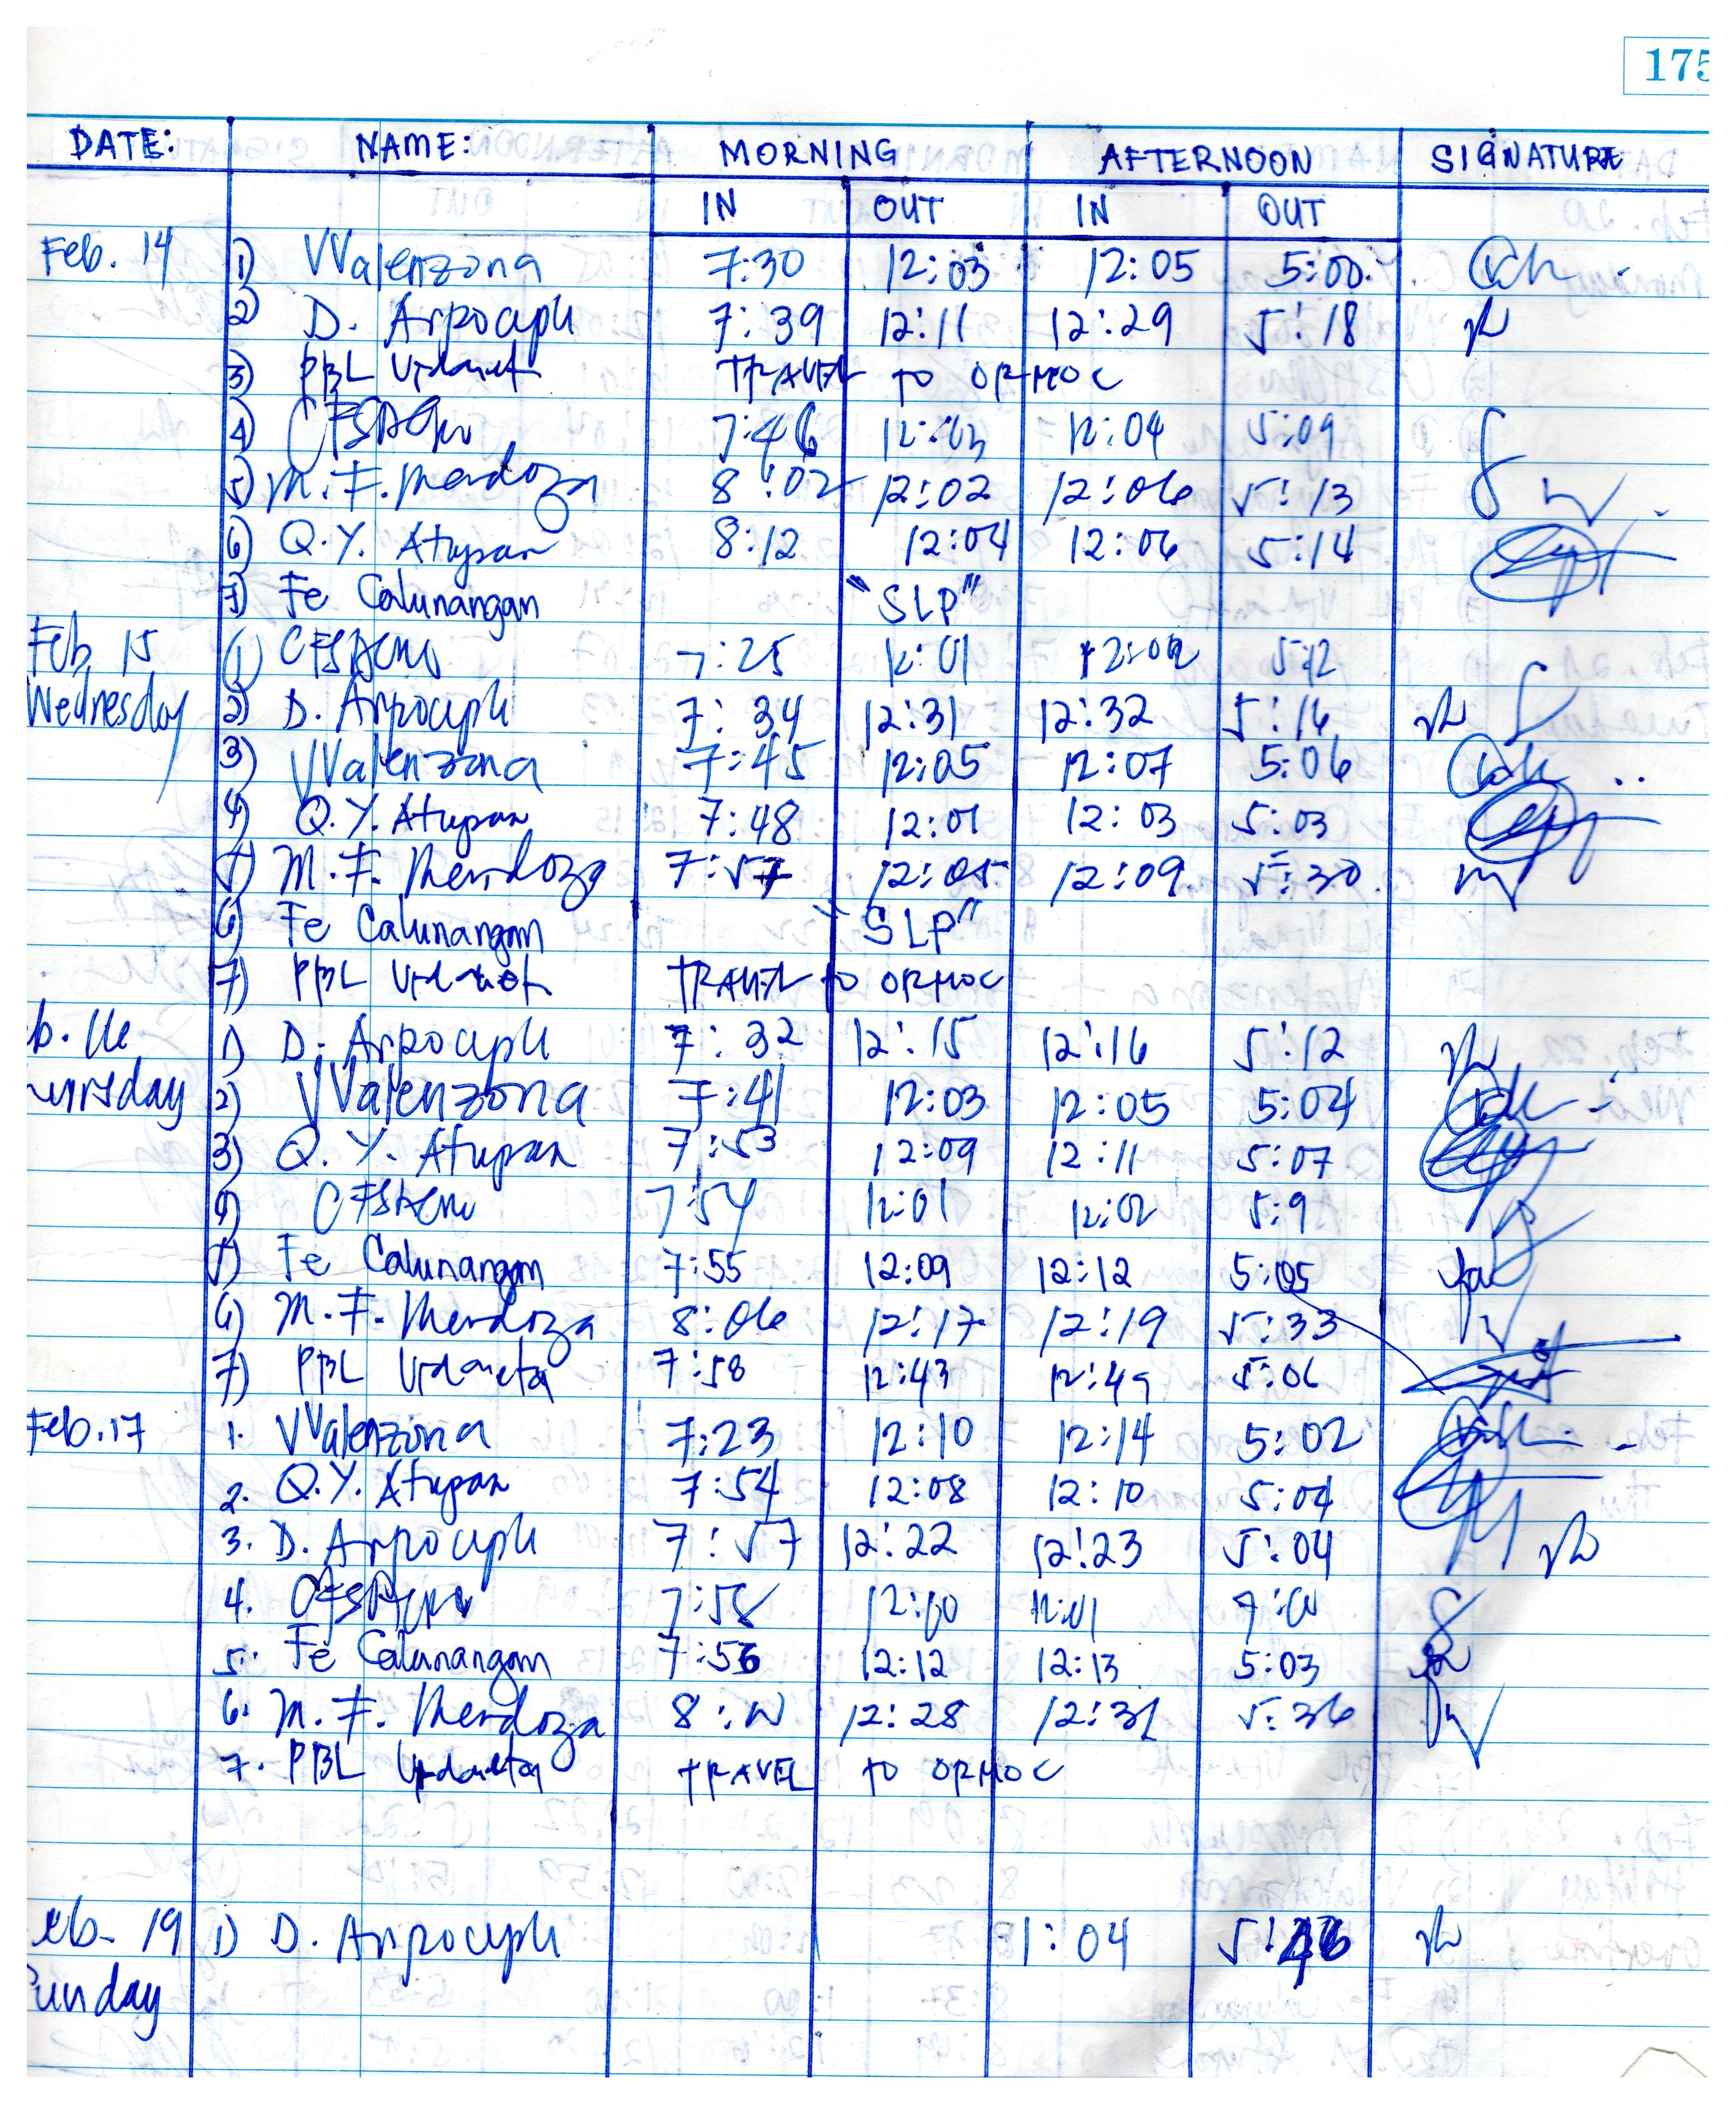 175
DATE: NAME: MORNING AFTERNOON SIGNATURE
IN OUT IN OUT
Feb. 14 1) VValenzona 7:30 12:03 12:05 5:00
2) D. Arpoceph 7:39 12:11 12:29 5:18
3) PBL TRAVEL TO ORMOC
4) 7:46 12:03 12:04 5:09
5) M. F. Mendoza 8:02 12:02 12:06 5:13
6) Q.Y. Atupan 8:12 12:04 12:06 5:14
7) Fe Calunangan "SLP"
Feb 15 1) 7:25 12:01 12:02 5:12
Wednesday 2) D. Arpoceph 7:34 12:31 12:32 5:16
3) VValenzona 7:45 12:05 12:07 5:06
4) Q.Y. Atupan 7:48 12:01 12:03 5:03
5) M. F. Mendoza 7:57 12:05 12:09 5:30
6) Fe Calunangan "SLP"
7) PBL TRAVEL TO ORMOC
b. 16 1) D. Arpoceph 7:32 12:15 12:16 5:12
ursday 2) VValenzona 7:41 12:03 12:05 5:04
3) Q. Y. Atupan 7:53 12:09 12:11 5:07
4) 7:54 12:01 12:02 5:9
5) Fe Calunangan 7:55 12:09 12:12 5:05
6) M. F. Mendoza 8:06 12:17 12:19 5:33
7) PBL Urdaneta 7:58 12:43 12:49 5:06
Feb. 17 1. VValenzona 7:23 12:10 12:14 5:02
2. Q.Y. Atupan 7:54 12:08 12:10 5:04
3. D. Arpoceph 7:57 12:22 12:23 5:04
4. 7:58 12:00 12:01
5. Fe Calunangan 7:56 12:12 12:13 5:03
6. M. F. Mendoza 12:28 12:31 5:36
7. PBL Urdaneta TRAVEL TO ORMOC
eb- 19 1) D. Arpoceph 1:04
unday